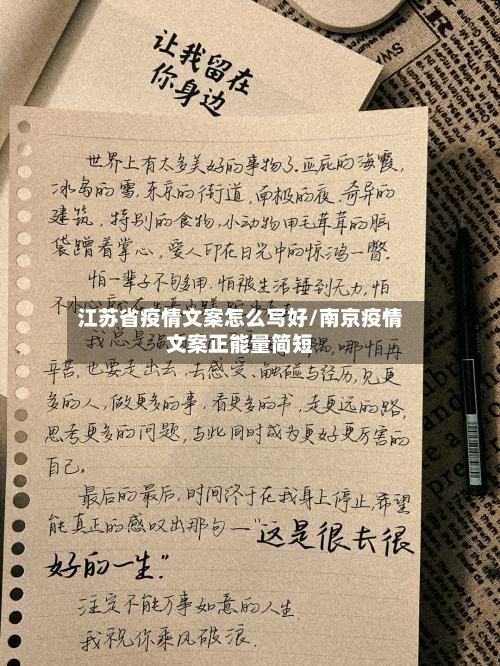 让我留在
你身边
世界上有太多美好的事物了。亚庇的海霞,
冰岛的雪,东京的街道,南极的夜,奇异的
建筑,特别的食物,小动物用毛茸茸的脑
袋蹭着掌心,爱人印在日光中的惊鸿一瞥。
怕一辈子不够用,怕被生活锤到无力,怕
不小心
江苏省疫情文案怎么写好/南京疫情
文案正能量简短
我总是强 哪怕再
辛苦,也要走出去,去感受、触碰与经历,见更
多的人,做更多的事,看更多的书,走更远的路,
思考更多的问题,与此同时成为更好更厉害的
自己。
最后的最后,时间终于在我身上停止,希望
能真正的感叹出那句一“这是很长很
好的一生.”
注定不能万事如意的人生
我祝你乘风破浪.